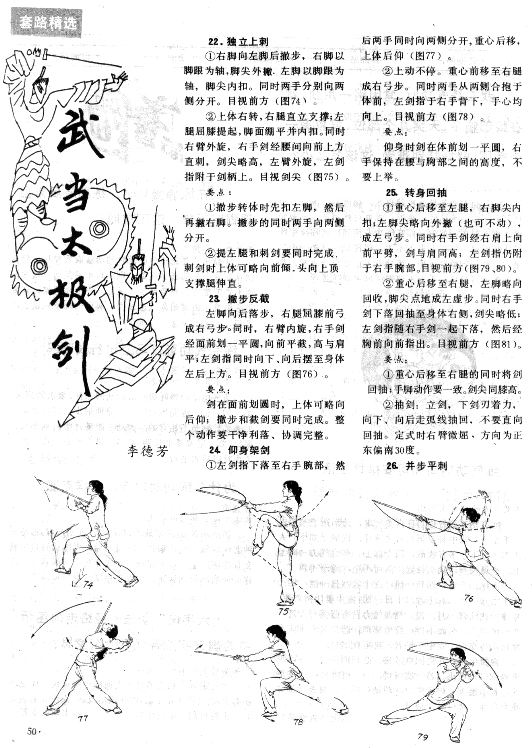 套路精选
武当太极剑
李德芳
22. 独立上刺
①右脚向左脚后撤步，右脚以
脚跟为轴,脚尖外撇.左脚以脚跟为
轴，脚尖内扣。同时两手分别向两
侧分开。目视前方（图74）。
②上体右转,右腿直立支撑;左
腿屈膝提起,脚面绷平并内扣。同时
右臂外旋，右手剑经腰间向前上方
直刺，剑尖略高，左臂外旋，左剑
指附于剑柄上。目视剑尖（图75）。
要点：
①撤步转体时先扣左脚，然后
再撇右脚。撤步的同时两手向两侧
分开。
②提左腿和刺剑要同时完成.
刺剑时上体可略向前倾.头向上顶
支撑腿伸直。
23. 撤步反截
左脚向后落步，右腿屈膝前弓
成右弓步。同时，右臂内旋,右手剑
经面前划一平圆,向前平截,高与肩
平;左剑指同时向下、向后摆至身体
左后上方。目视前方（图76）。
要点：
剑在面前划圆时，上体可略向
后仰；撤步和截剑要同时完成。整
个动作要干净利落、协调完整。
24. 仰身架剑
①左剑指下落至右手腕部，然
后两手同时向两侧分开,重心后移,
上体后仰（图77）。
②上动不停。重心前移至右腿
成右弓步。同时两手从两侧合抱于
体前，左剑指于右手背下，手心均
向上。目视前方（图78）。
要点：
仰身时剑在体前划一平圆，右
手保持在腰与胸部之间的高度，不
要上举。
25. 转身回抽
①重心后移至左腿，右脚尖内
扣;左脚尖略向外撇（也可不动），
成左弓步。同时右手剑经右肩上向
前平劈，剑与肩同高；左剑指仍附
于右手腕部。目视前方(图79、80)。
②重心后移至右腿，左脚略向
回收,脚尖点地成左虚步。同时右手
剑下落回抽至身体右侧,剑尖略低;
左剑指随右手剑一起下落，然后经
胸前向前指出。目视前方（图81）。
要点：
①重心后移至右腿的同时将剑
回抽;手脚动作要一致。剑尖同膝高。
②抽剑：立剑，下剑刃着力，
向下、向后走弧线抽回，不要直向
回抽。定式时右臂微屈、方向为正
东偏南30度。
26. 并步平刺
74
75
76
77
78
79
50·